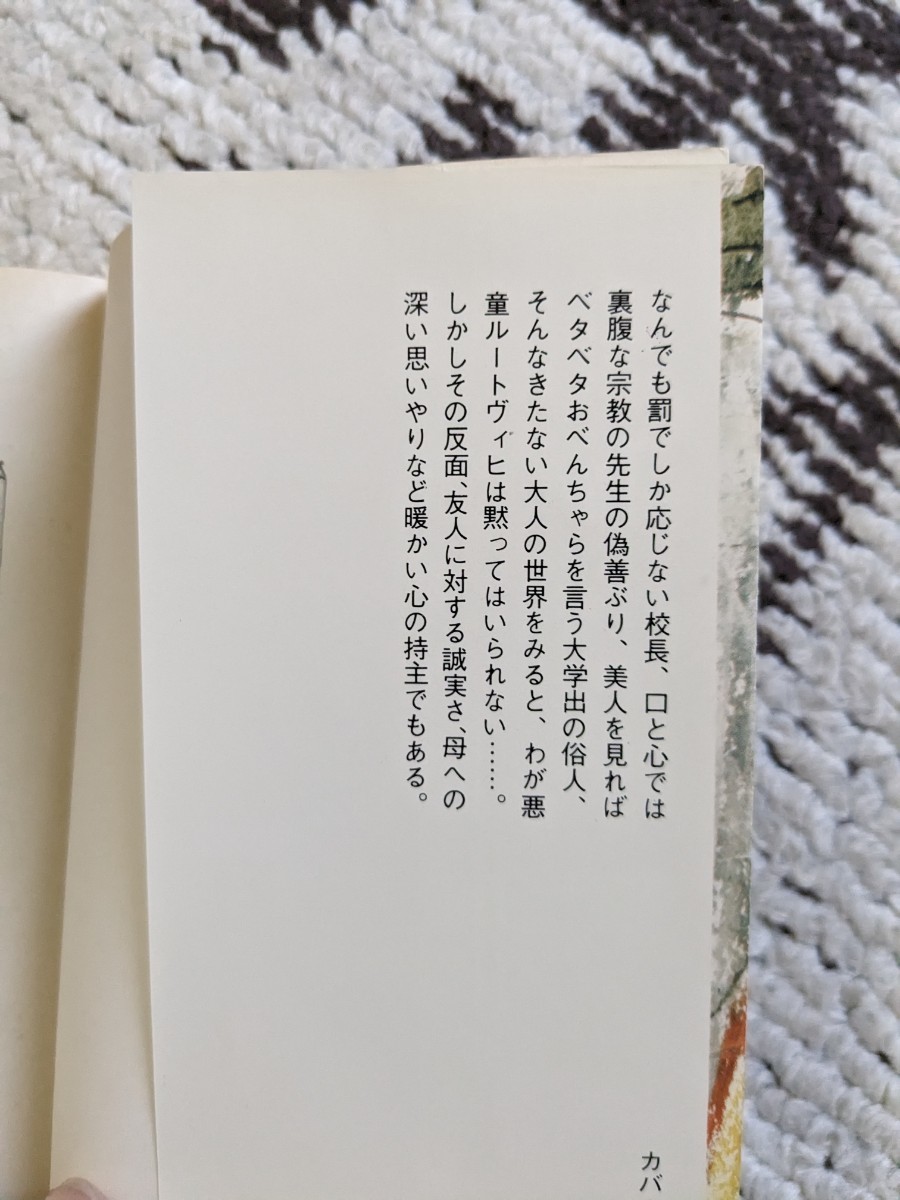 なんでも罰でしか応じない校長、口と心では
裏腹な宗教の先生の偽善ぶり、美人を見れば
ベタベタおべんちゃらを言う大学出の俗人、
そんなきたない大人の世界をみると、わが悪
童ルートヴィヒは黙ってはいられない……。
しかしその反面、友人に対する誠実さ、母への
深い思いやりなど暖かい心の持主でもある。
カバ